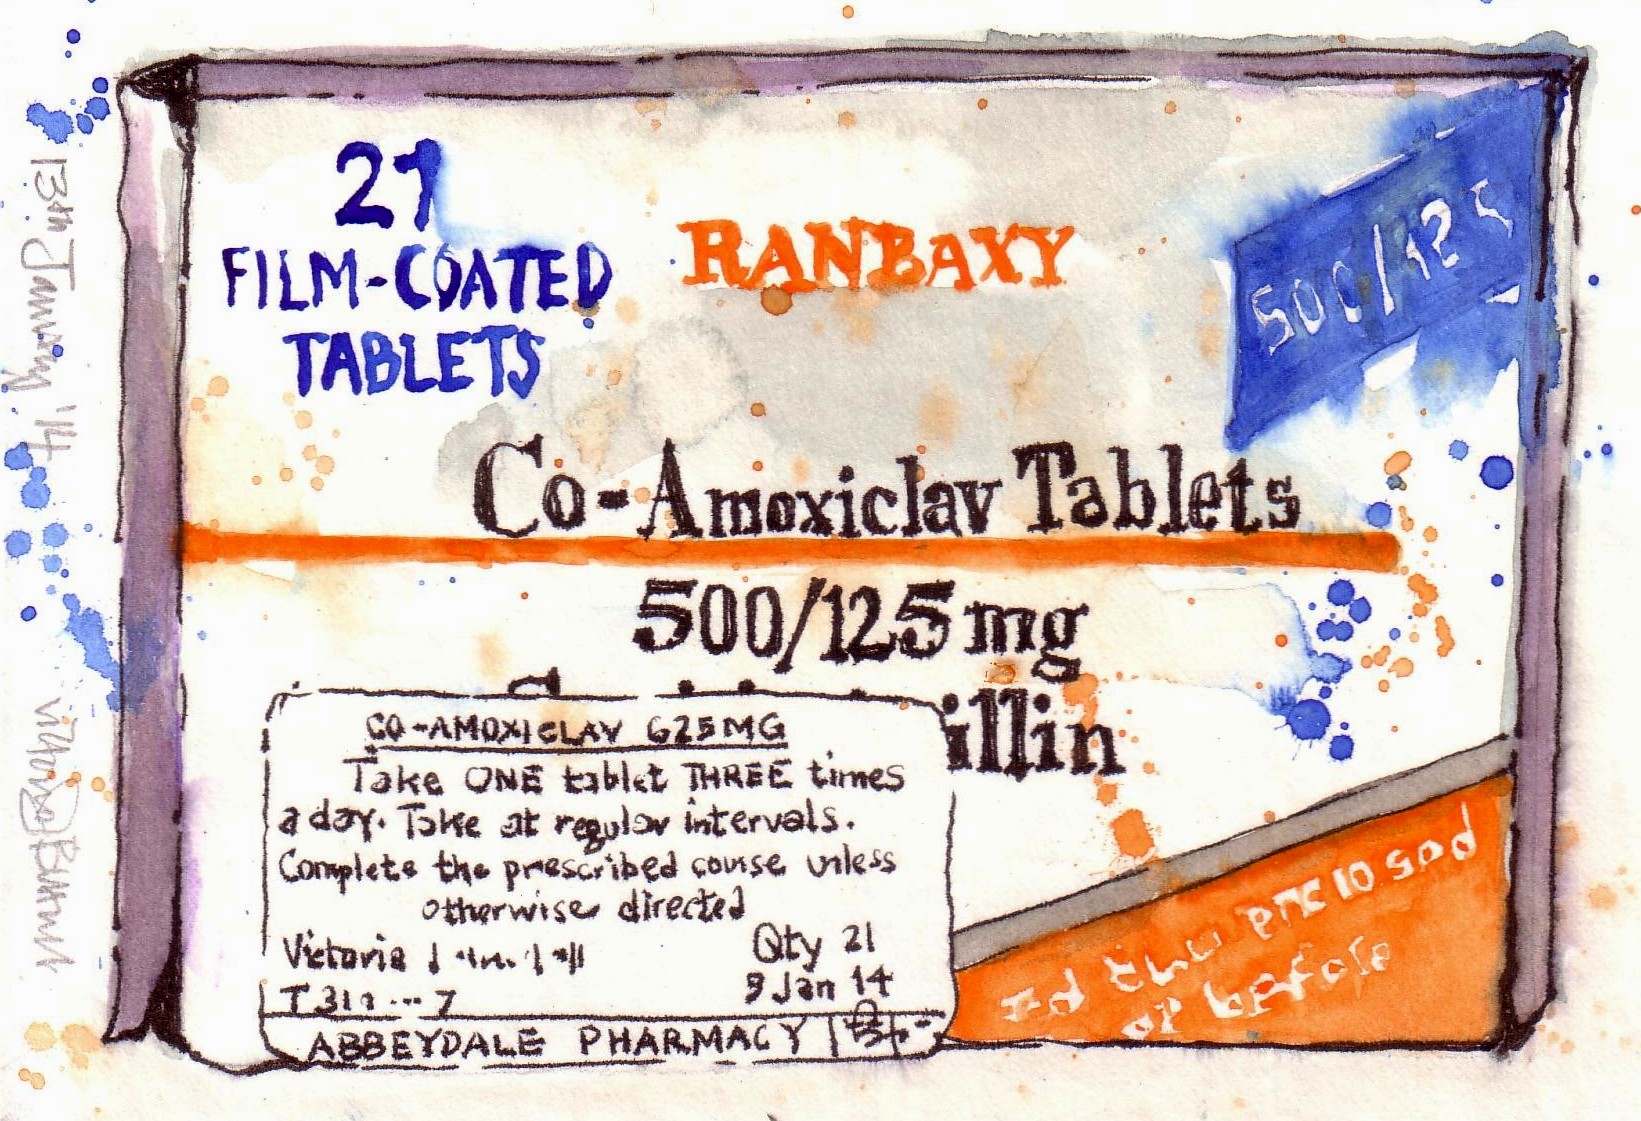 21
FILM-COATED
TABLETS
RANBAXY
500/125
Co-Amoxiclav Tablets
500/125 mg
illin
CO-AMOXICLAV 625MG
Take ONE tablet THREE times
a day. Take at regular intervals.
Complete the prescribed course unless
otherwise directed
Victoria
Qty 21
9 Jan 14
ABBEYDALE PHARMACY
13th January '14